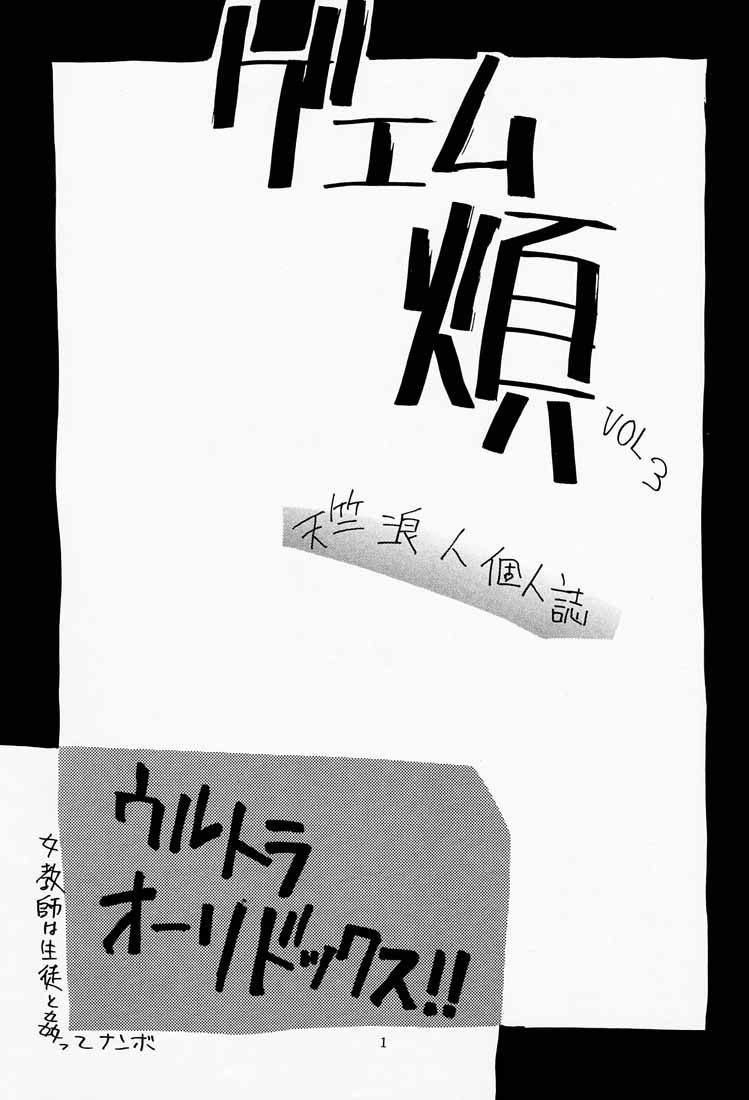 ゲエム
煩
VOL3
天竺浪人個人誌
ウルトラ
オーソドックス!!
女教師は生徒と姦ってナンボ
1